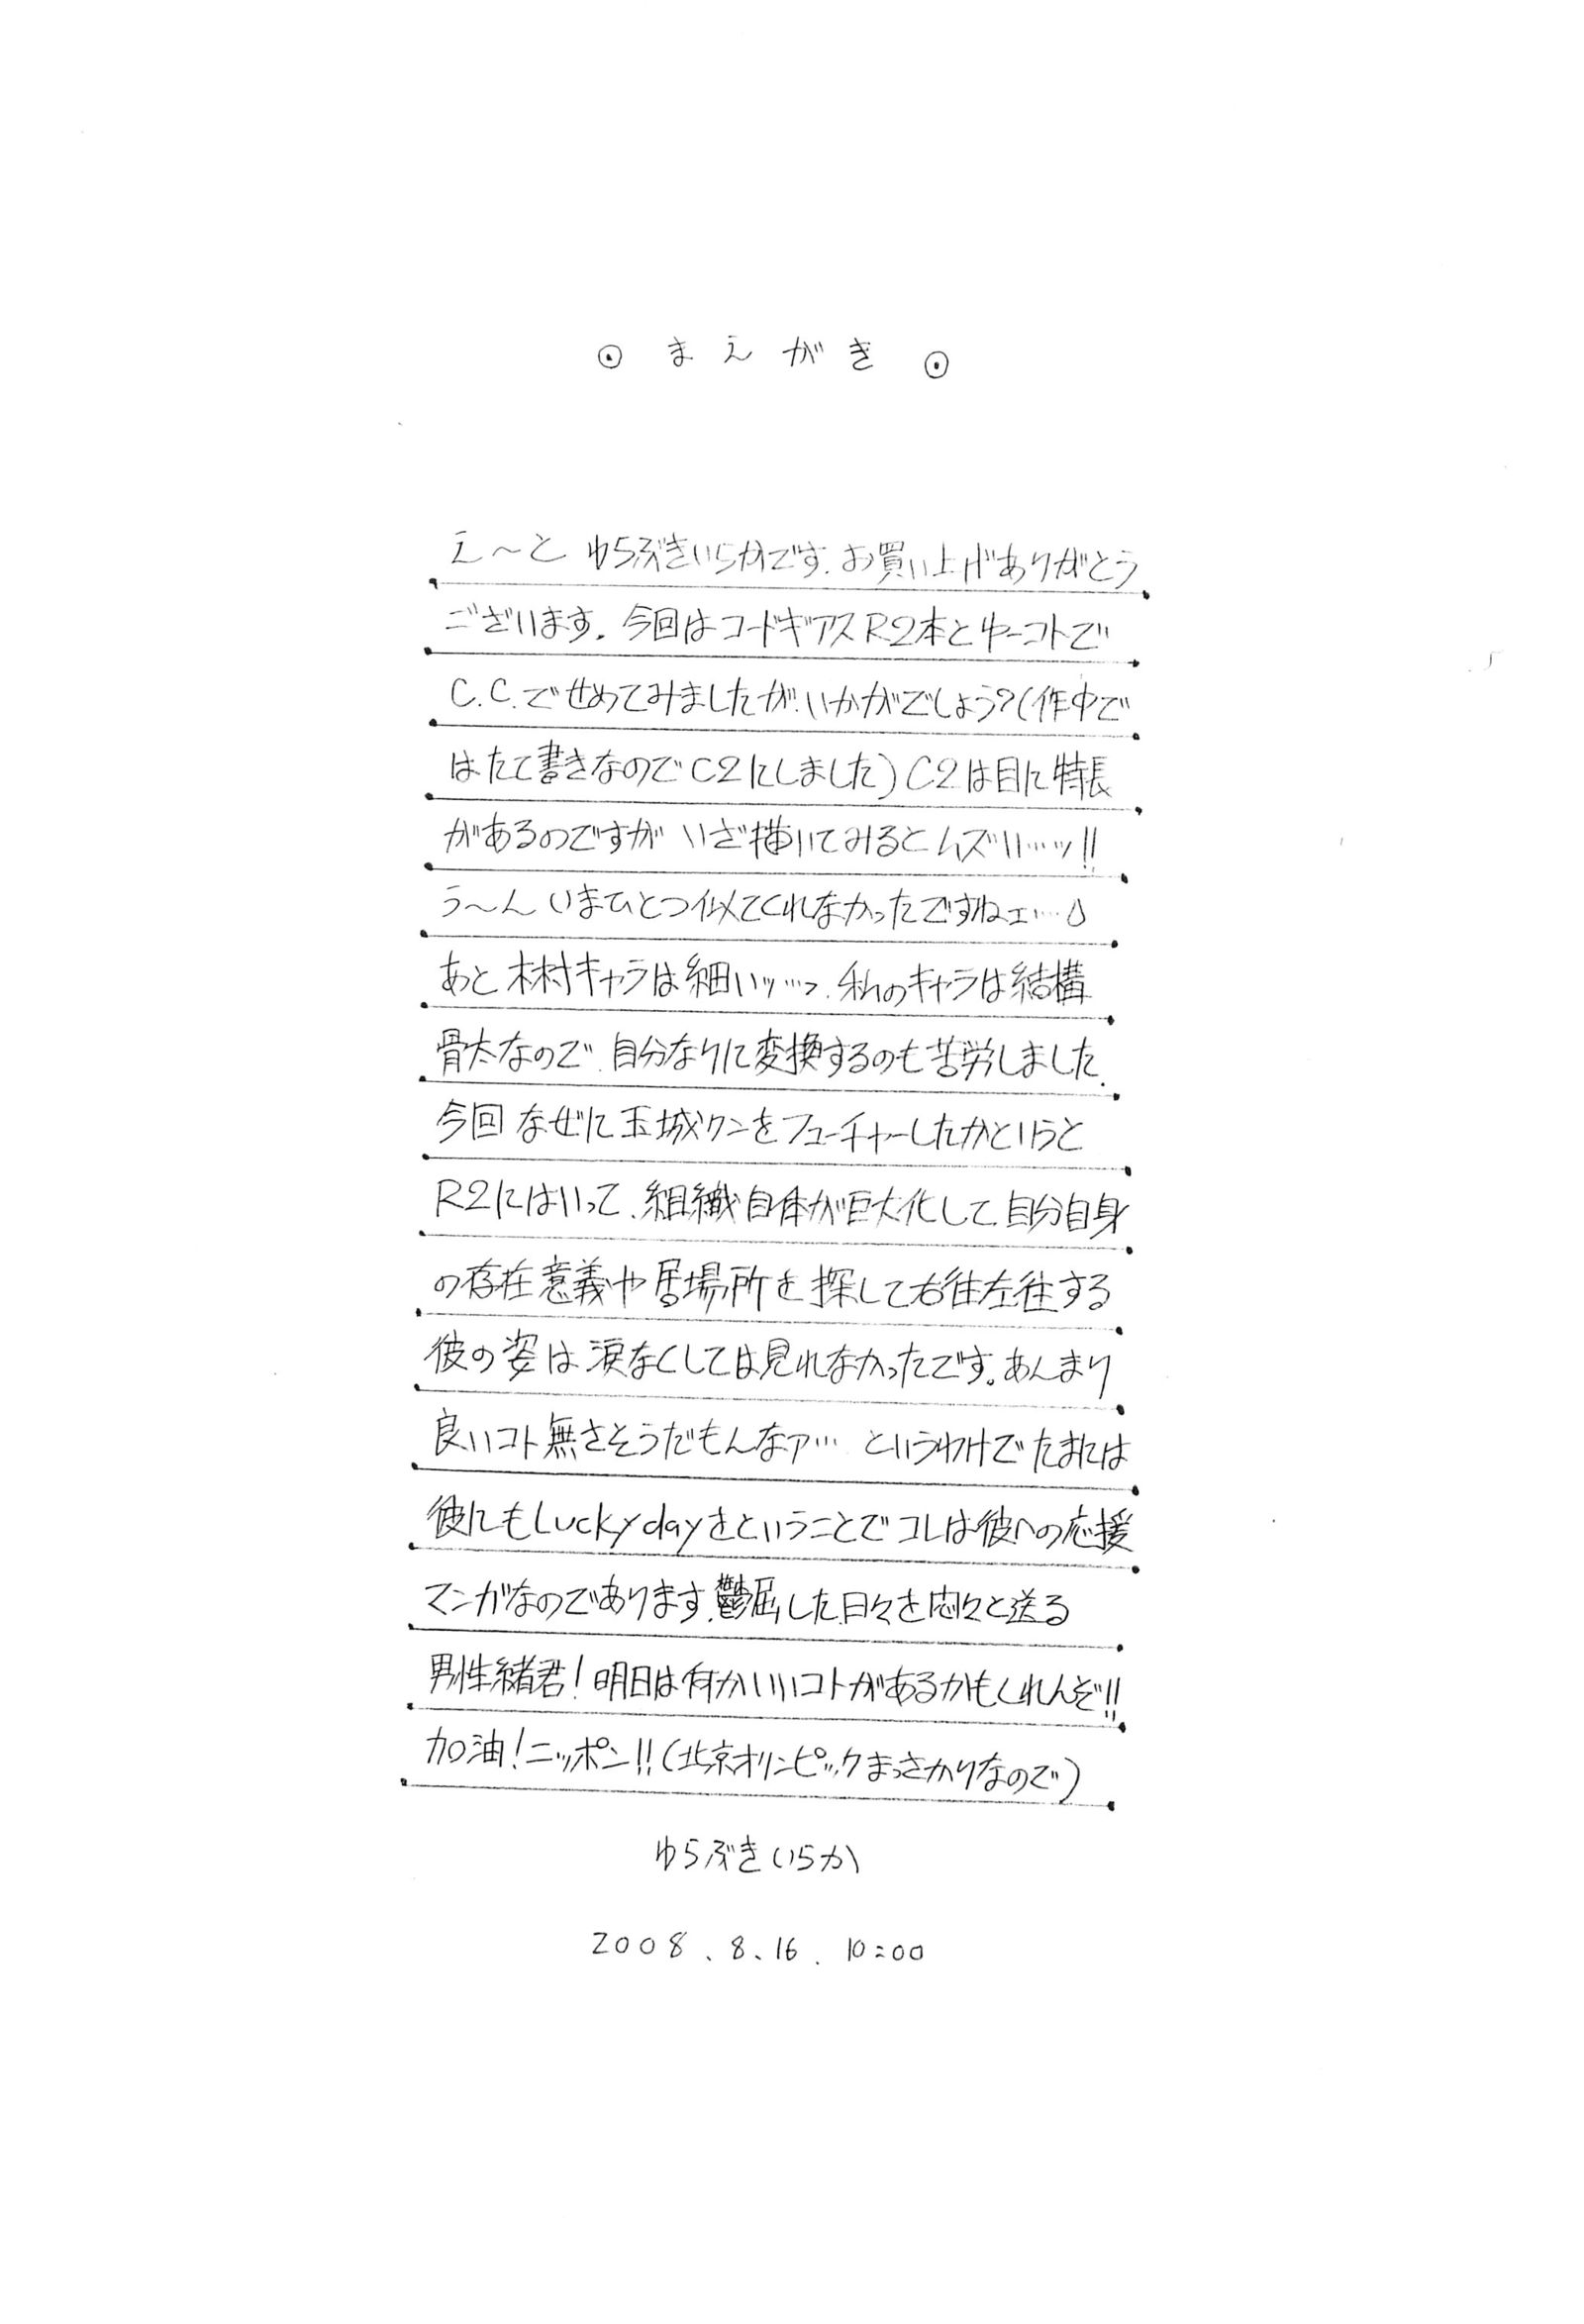 ⊙ まえがき ⊙
え〜と ゆらぶきいらかです.お買い上げありがとう
ございます。今回はコードギアスR2本とゆーコトで
C.C.でせめてみましたが.いかがでしょう?(作中で
はたて書きなのでC2にしました)C2は目に特長
があるのですが いざ描いてみるとムズい…ッ!!
う〜ん いまひとつ似てくれなかったですねェ…
あと木村キャラは細いッ…っ.私のキャラは結構
骨太なので.自分なりに変換するのも苦労しました.
今回なぜに玉城クンをフューチャーしたかというと
R2にはいって、組織自体が巨大化して.自分自身
の存在意義や居場所を探して右往左往する
彼の姿は涙なくしては見れなかったです。あんまり
良いコト無さそうだもんなァ… というわけでたまには
彼にもLucky dayをということでコレは彼への応援
マンガなのであります.鬱屈した日々を悶々と送る
男性緒君!明日は何かいいコトがあるかもしれんぞ!!
加油!ニッポン!!(北京オリンピックまっさかりなので)
ゆらぶきいらか
2008.8.16. 10:00